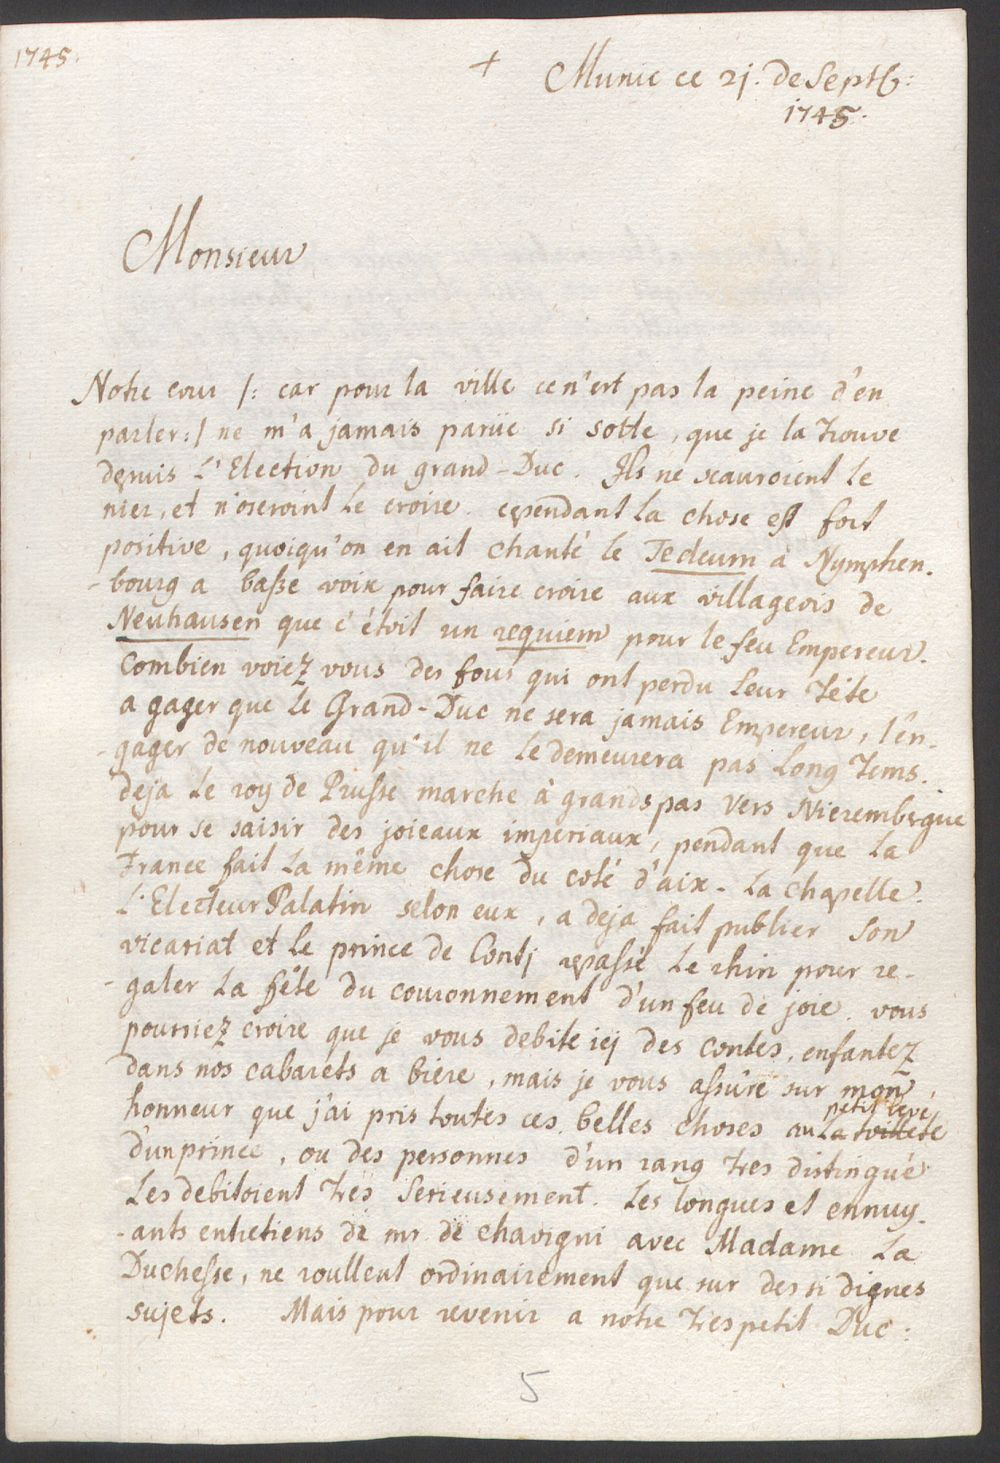 1745.
+ Munic ce 21. de Septb:
1745.
Monsieur
Notre cour /: car pour la ville ce n'est pas la peine d'en
parler :/ ne m'a jamais parüe si sotte, que je la trouve
depuis L'Election du grand-Duc. Ils ne scauroient le
nier, et n'oseroint le croire. cependant la chose est fort
positive, quoiqu'on en ait chanté le Tedeum à Nymphen-
-bourg a basse voix pour faire croire aux villageois de
Neuhausen que c'étoit un requiem pour le feu Empereur.
Combien voiez vous des fous qui ont perdu leur téte
a gager que le Grand-Duc ne sera jamais Empereur, s'en-
-gager de nouveau qu'il ne le demeurera pas Long tems.
deja Le roy de Prusse marche à grands pas vers Nierembergue
pour se saisir des joieaux imperiaux, pendant que la
France fait la même chose du coté d'aix-la chapelle.
L'Electeur Palatin selon eux, a deja fait publier son
vicariat et le prince de Conti repassé Le rhin pour re-
-galer La féte du couronnement d'un feu de joie. vous
pourriez croire que je vous debite icj des contes, enfantez
dans nos cabarets a biere, mais je vous assûre sur mon
honneur que j'ai pris toutes ces belles choses au la toillete petit levé
d'un prince, ou des personnes d'un rang tres distingué
Les debitoient tres serieusement. Les longues et ennuy-
-ants entretiens de mr de chavigni avec Madame La
Duchesse, ne roullent ordinairement que sur des si dignes
sujets. Mais pour revenir a notre tres petit Duc:
5